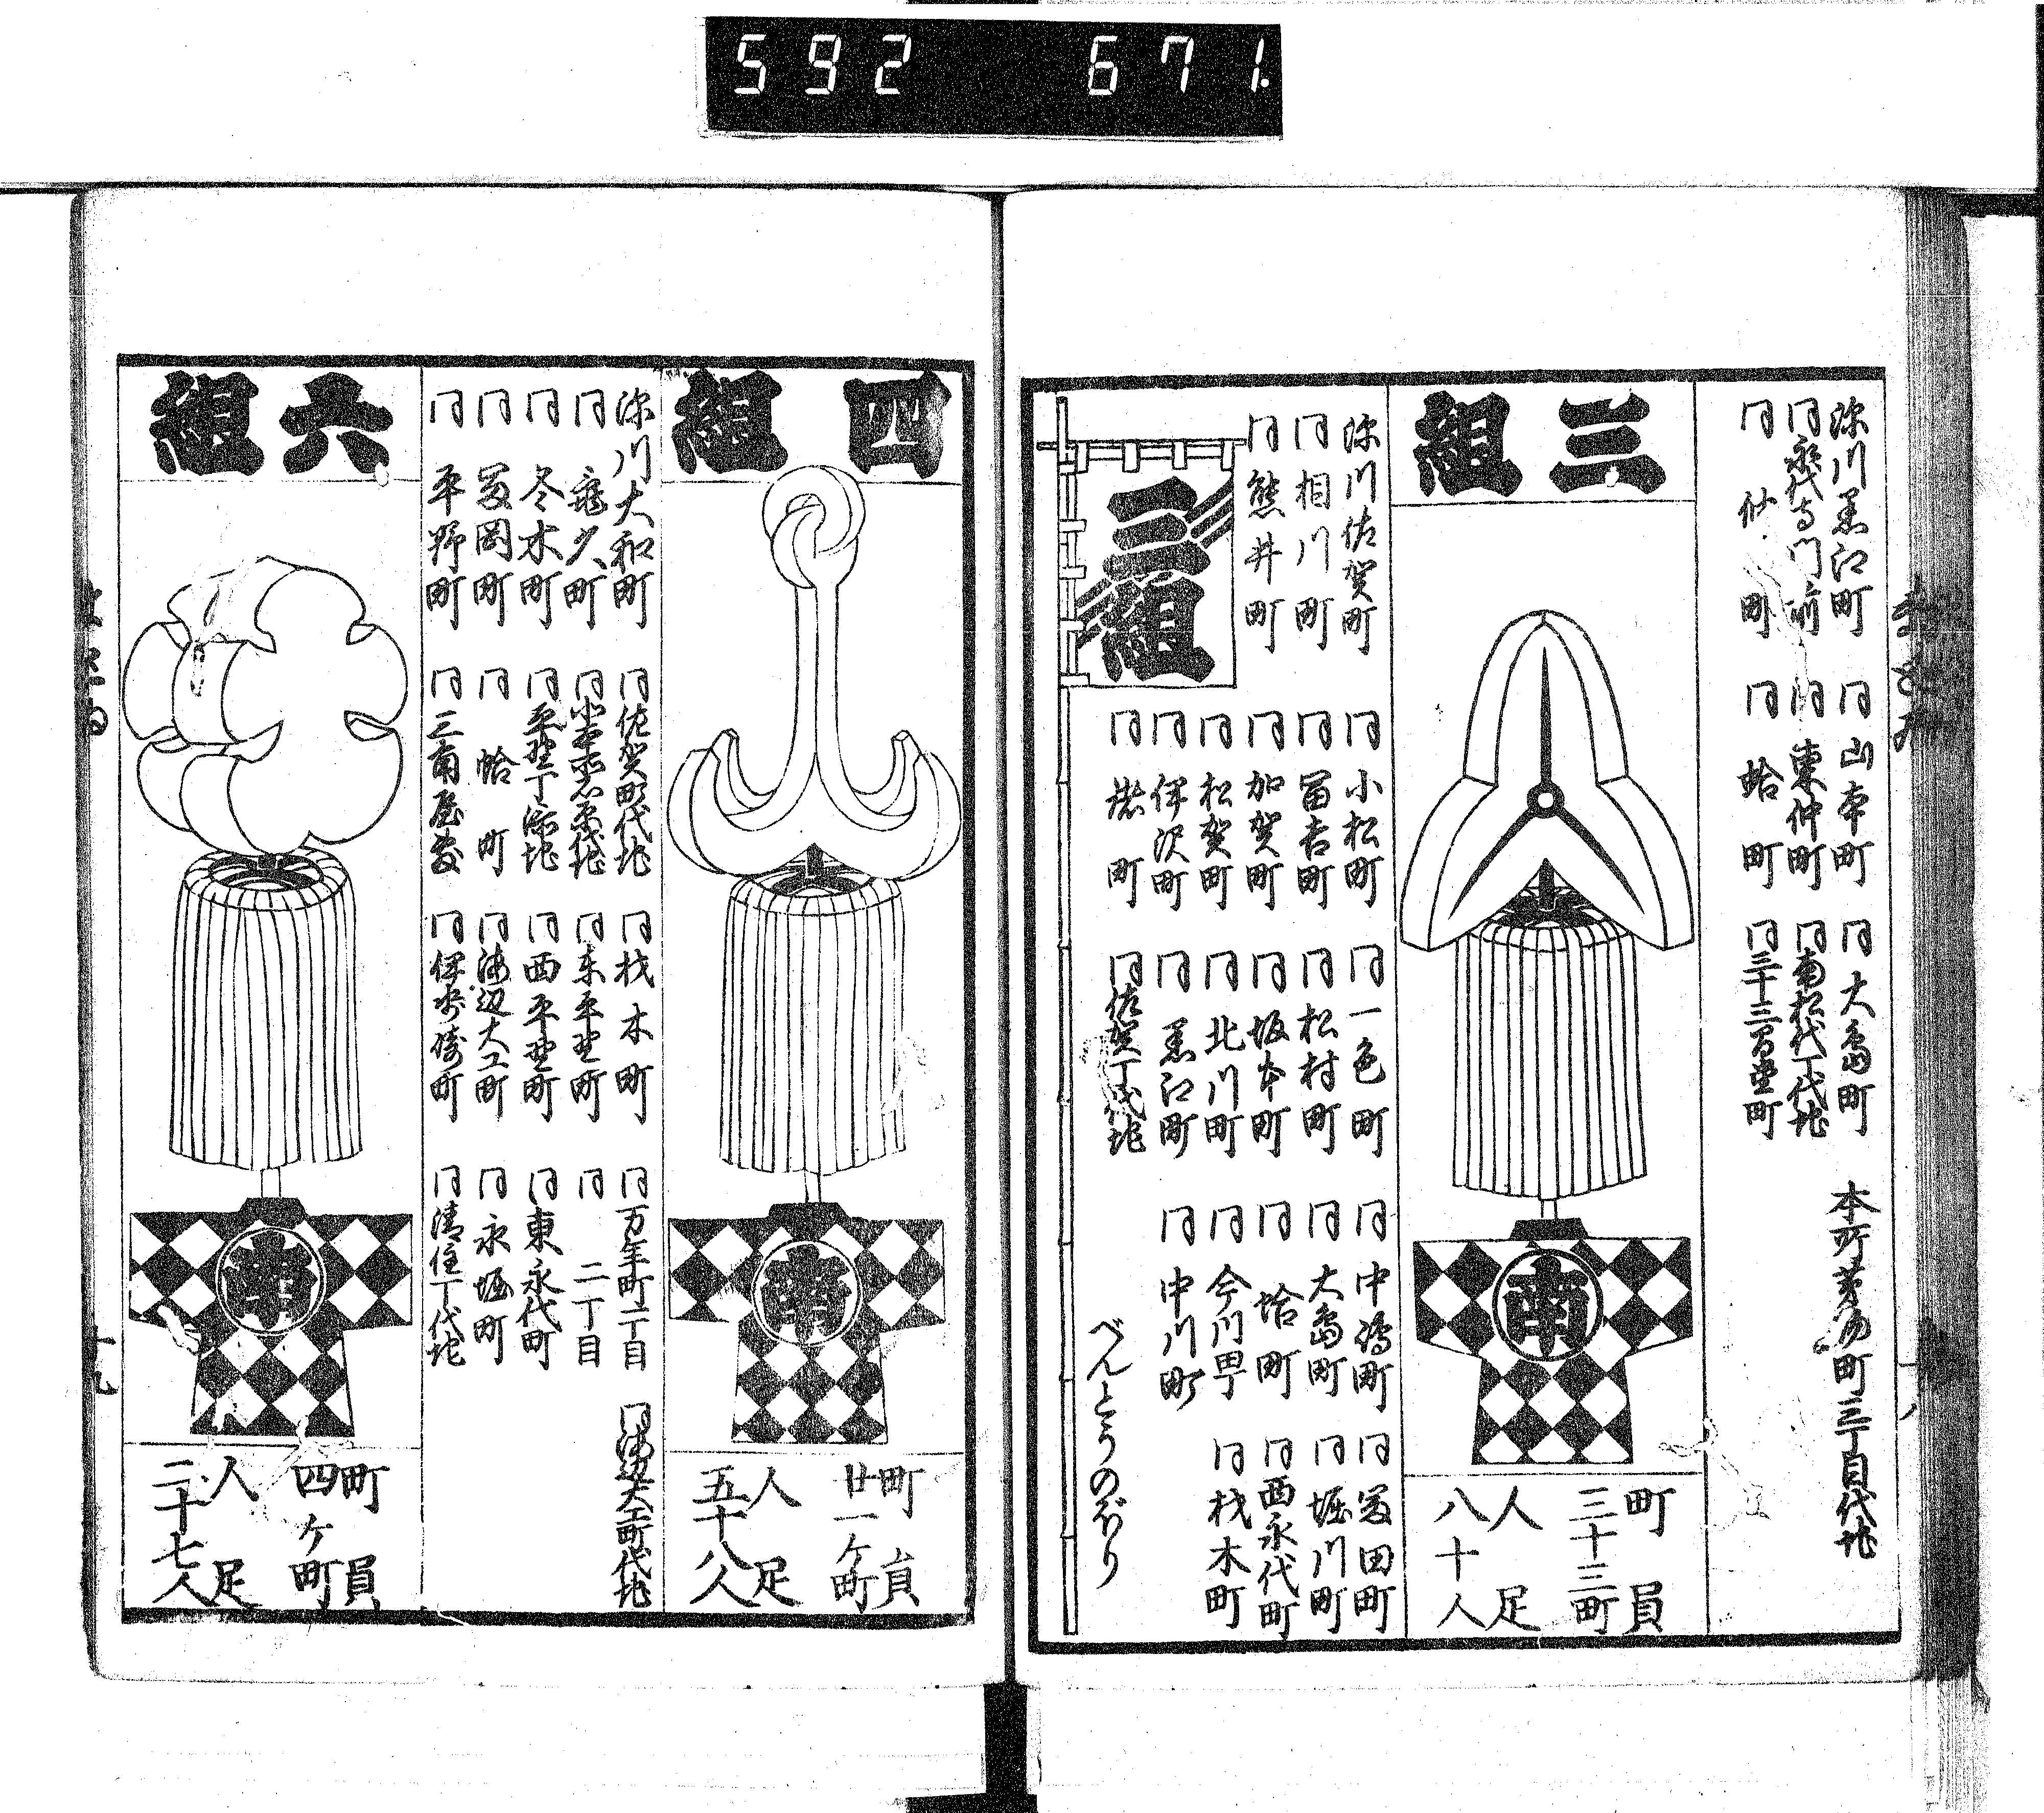 592 671.
深川黒江町
同山本町
同大島町
本所茅場町三丁目代地
同永代寺門前
同東仲町
同南松代丁代地
同仲町
同蛤町
同三十三間堂町
三組
南
町員
三十三町
人足
八十人
深川佐賀町
同小松町
同一色町
同中嶋町
同冨田町
同相川町
同冨吉町
同松村町
同大島町
同堀川町
同熊井町
同加賀町
同坂本町
同蛤町
同西永代町
同松賀町
同北川町
同今川町
同材木町
同伊沢町
同黒江町
同中川町
同諸町
同佐賀丁代地
三組
べんとうのぼり
四組
南
町員
廿一ケ町
人足
五十八人
深川大和町
同佐賀町代地
同材木町
同万年町一丁目
同海辺大工町代地
同亀久町
同東平野町
同二丁目
同冬木町
同平野丁添地
同西平野町
同東永代町
同冨岡町
同蛤町
同海辺大工町
同永堀町
同平野町
同三角屋敷
同伊勢崎町
同清住丁代地
六組
南
町員
四ケ町
人足
二十七人
十九